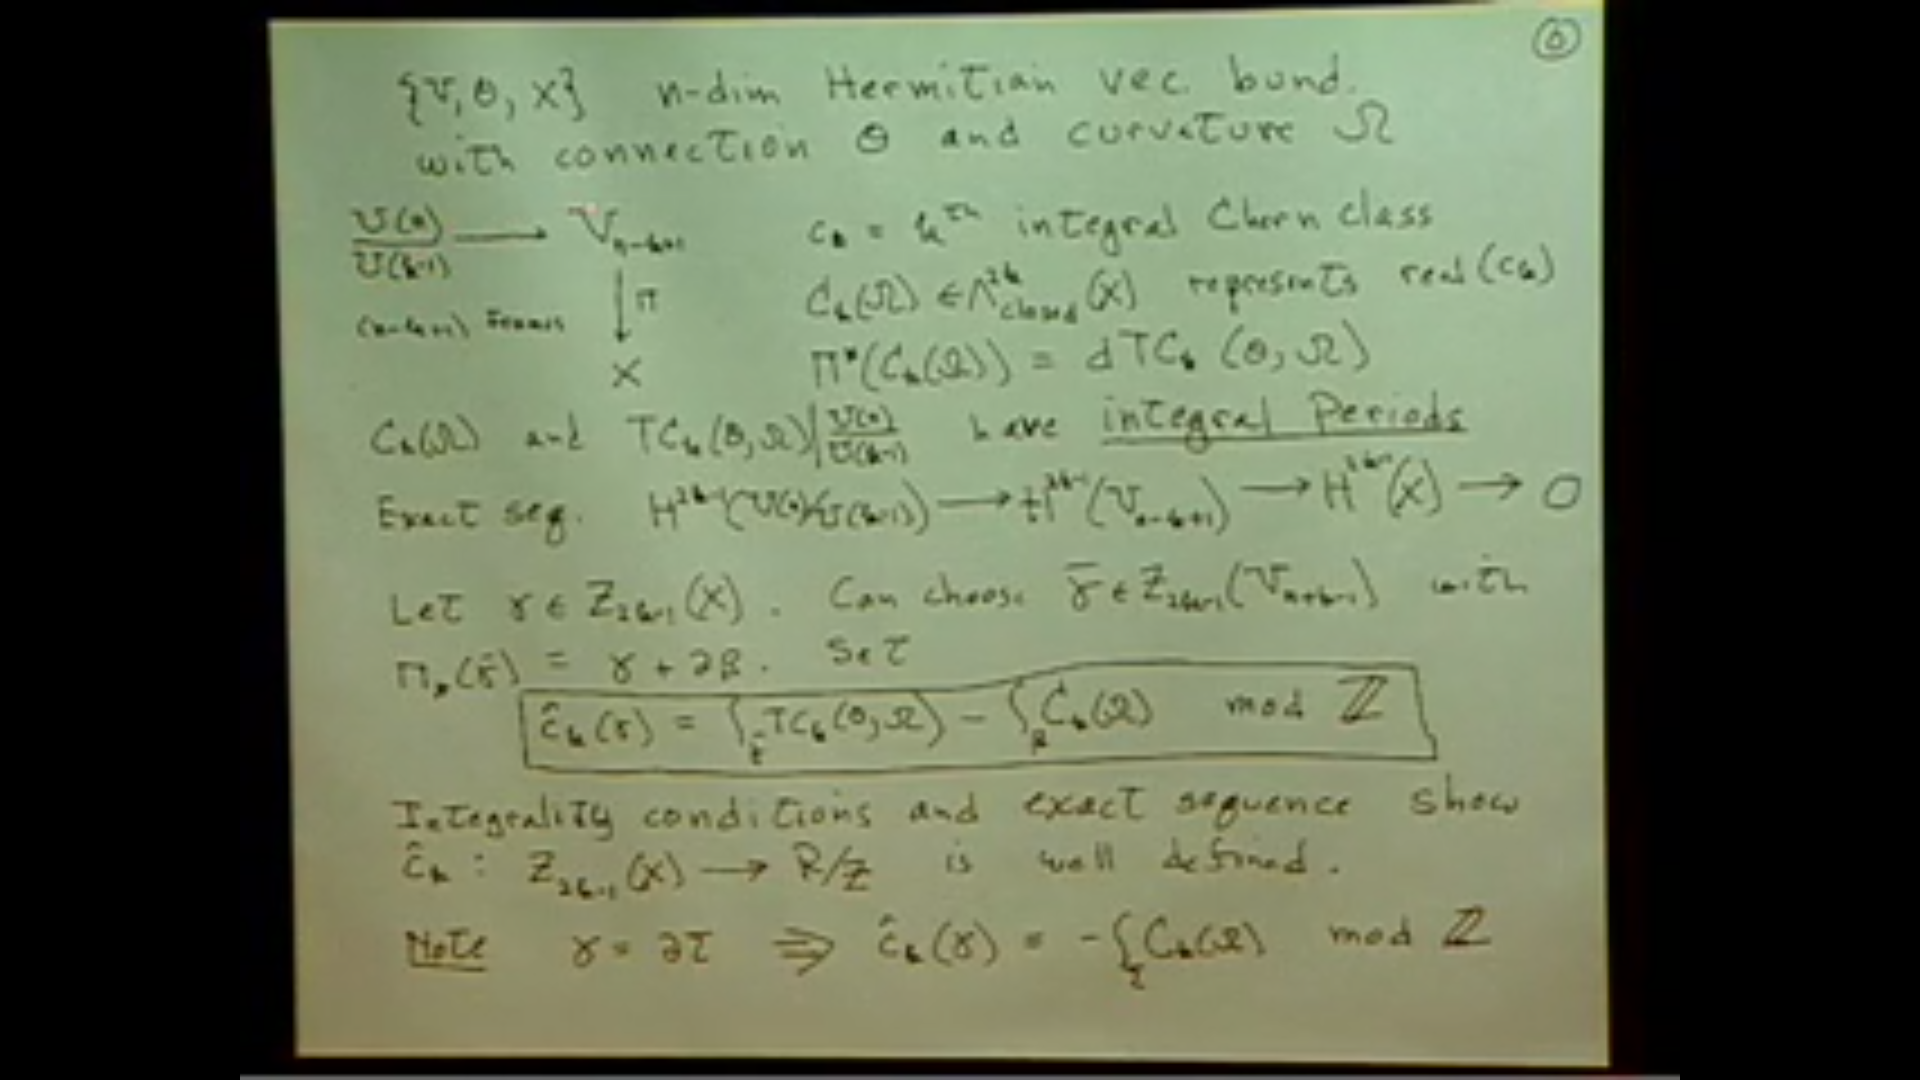 ⑥
{V, θ, X} n-dim Hermitian vec. bund.
with connection θ and curvature Ω
U(n)/U(k-1) → V_{n-k+1} c_k = k^{th} integral Chern class
↓ π C_k(Ω) ∈ Λ^{2k}_{closed}(X) represents real(c_k)
(n-k+1) Frames
X π*(C_k(Ω)) = dTC_k(θ, Ω)
C_k(Ω) and TC_k(θ,Ω)|U(n)/U(k-1) have integral Periods
Exact seq. H^{2k-1}(U(n)/U(k-1)) → H^{2k-1}(V_{n-k+1}) → H^{2k-1}(X) → 0
Let γ ∈ Z_{2k-1}(X). Can choose γ̄ ∈ Z_{2k-1}(V_{n+k-1}) with
π_*(γ̄) = γ + ∂β. Set
ĉ_k(γ) = ∫_γ̄ TC_k(θ,Ω) - ∫_β C_k(Ω) mod ℤ
Integrality conditions and exact sequence show
ĉ_k : Z_{2k-1}(X) → R/Z is well defined.
Note γ = ∂τ ⇒ ĉ_k(γ) = -∫_τ C_k(Ω) mod ℤ